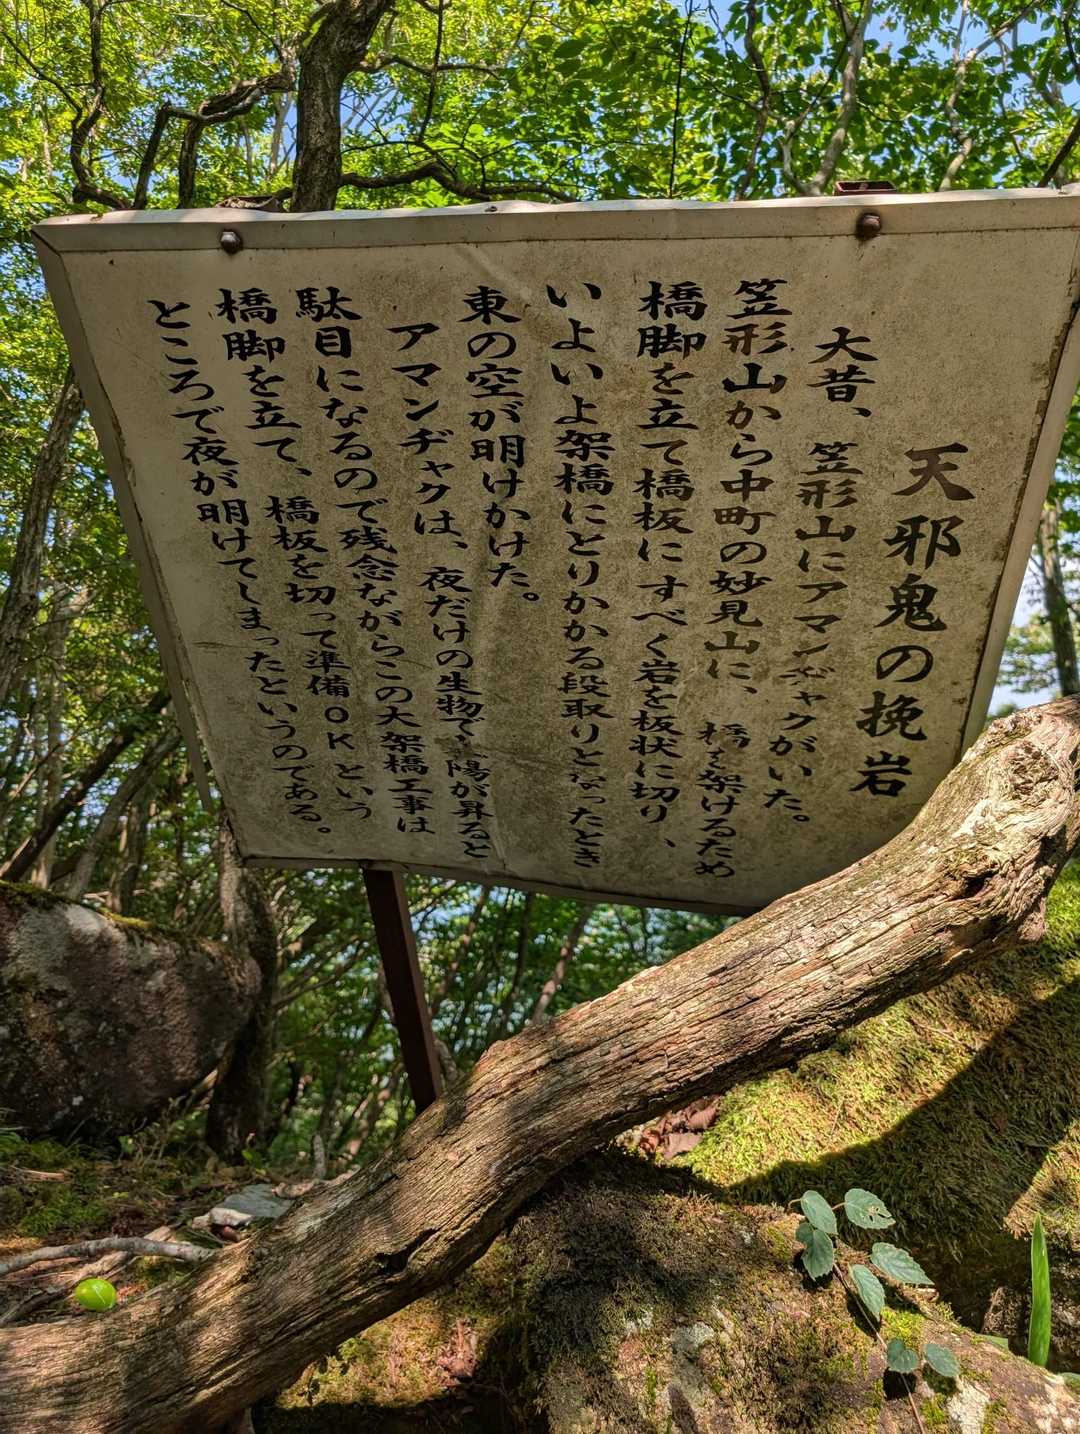 天邪鬼の挽岩
大昔、笠形山にアマンヂャクがいた。
笠形山から中町の妙見山に、橋を架けるため
橋脚を立て橋板にすべく岩を板状に切り、
いよいよ架橋にとりかかる段取りとなったとき
東の空が明けかけた。
アマンヂャクは、夜だけの生物で陽が昇ると
駄目になるので残念ながらこの大架橋工事は
橋脚を立て、橋板を切って準備OKという
ところで夜が明けてしまったというのである。